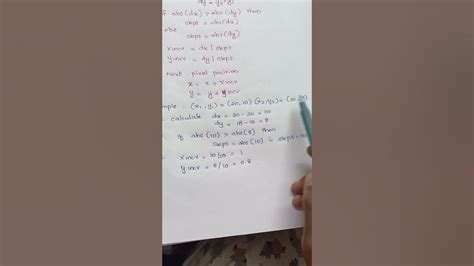 dy = y2 - y1
if abs(dx) > abs(dy) then
steps = abs(dx)
else
steps = abs(dy)
xincr = dx / steps
yincr = dy / steps
next pixel position
x = x + xincr
y = y + yincr
(x1, y1) = (20, 10) (x2, y2) = (30
calculate dx = 30 - 20 = 10
dy = 18 - 10 = 8
if abs(10) > abs(8) then
steps = abs(10) steps = 10
xincr = 10/10 = 1
yincr = 8/10 = 0.8